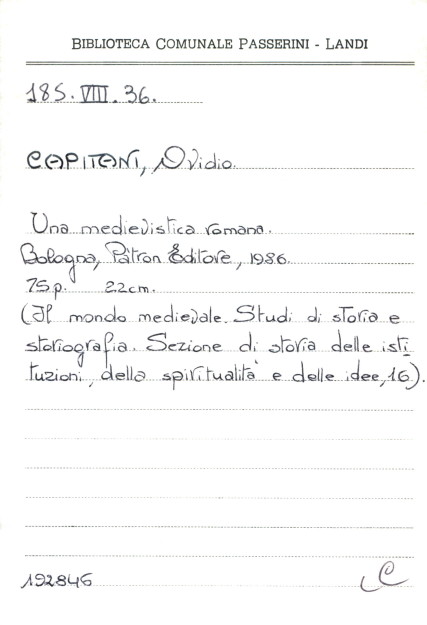 BIBLIOTECA COMUNALE PASSERINI - LANDI
185. VIII. 36.
CAPITANI, Ovidio.
Una medievistica romana.
Bologna, Pàtron Editore, 1986.
75 p. 22 cm.
(Il mondo medievale. Studi di storia e
storiografia. Sezione di storia delle isti
tuzioni, della spiritualità e delle idee, 16).
192846